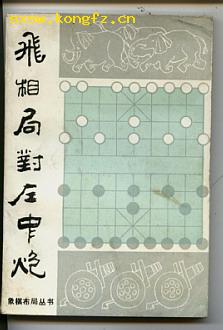 www.kongfz.cn
飛相局對左中炮
象棋布局丛书